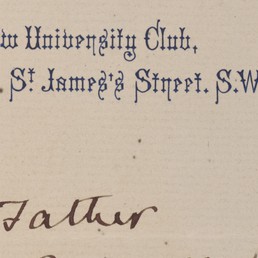 w University Club,
St James's Street. S.W
Father